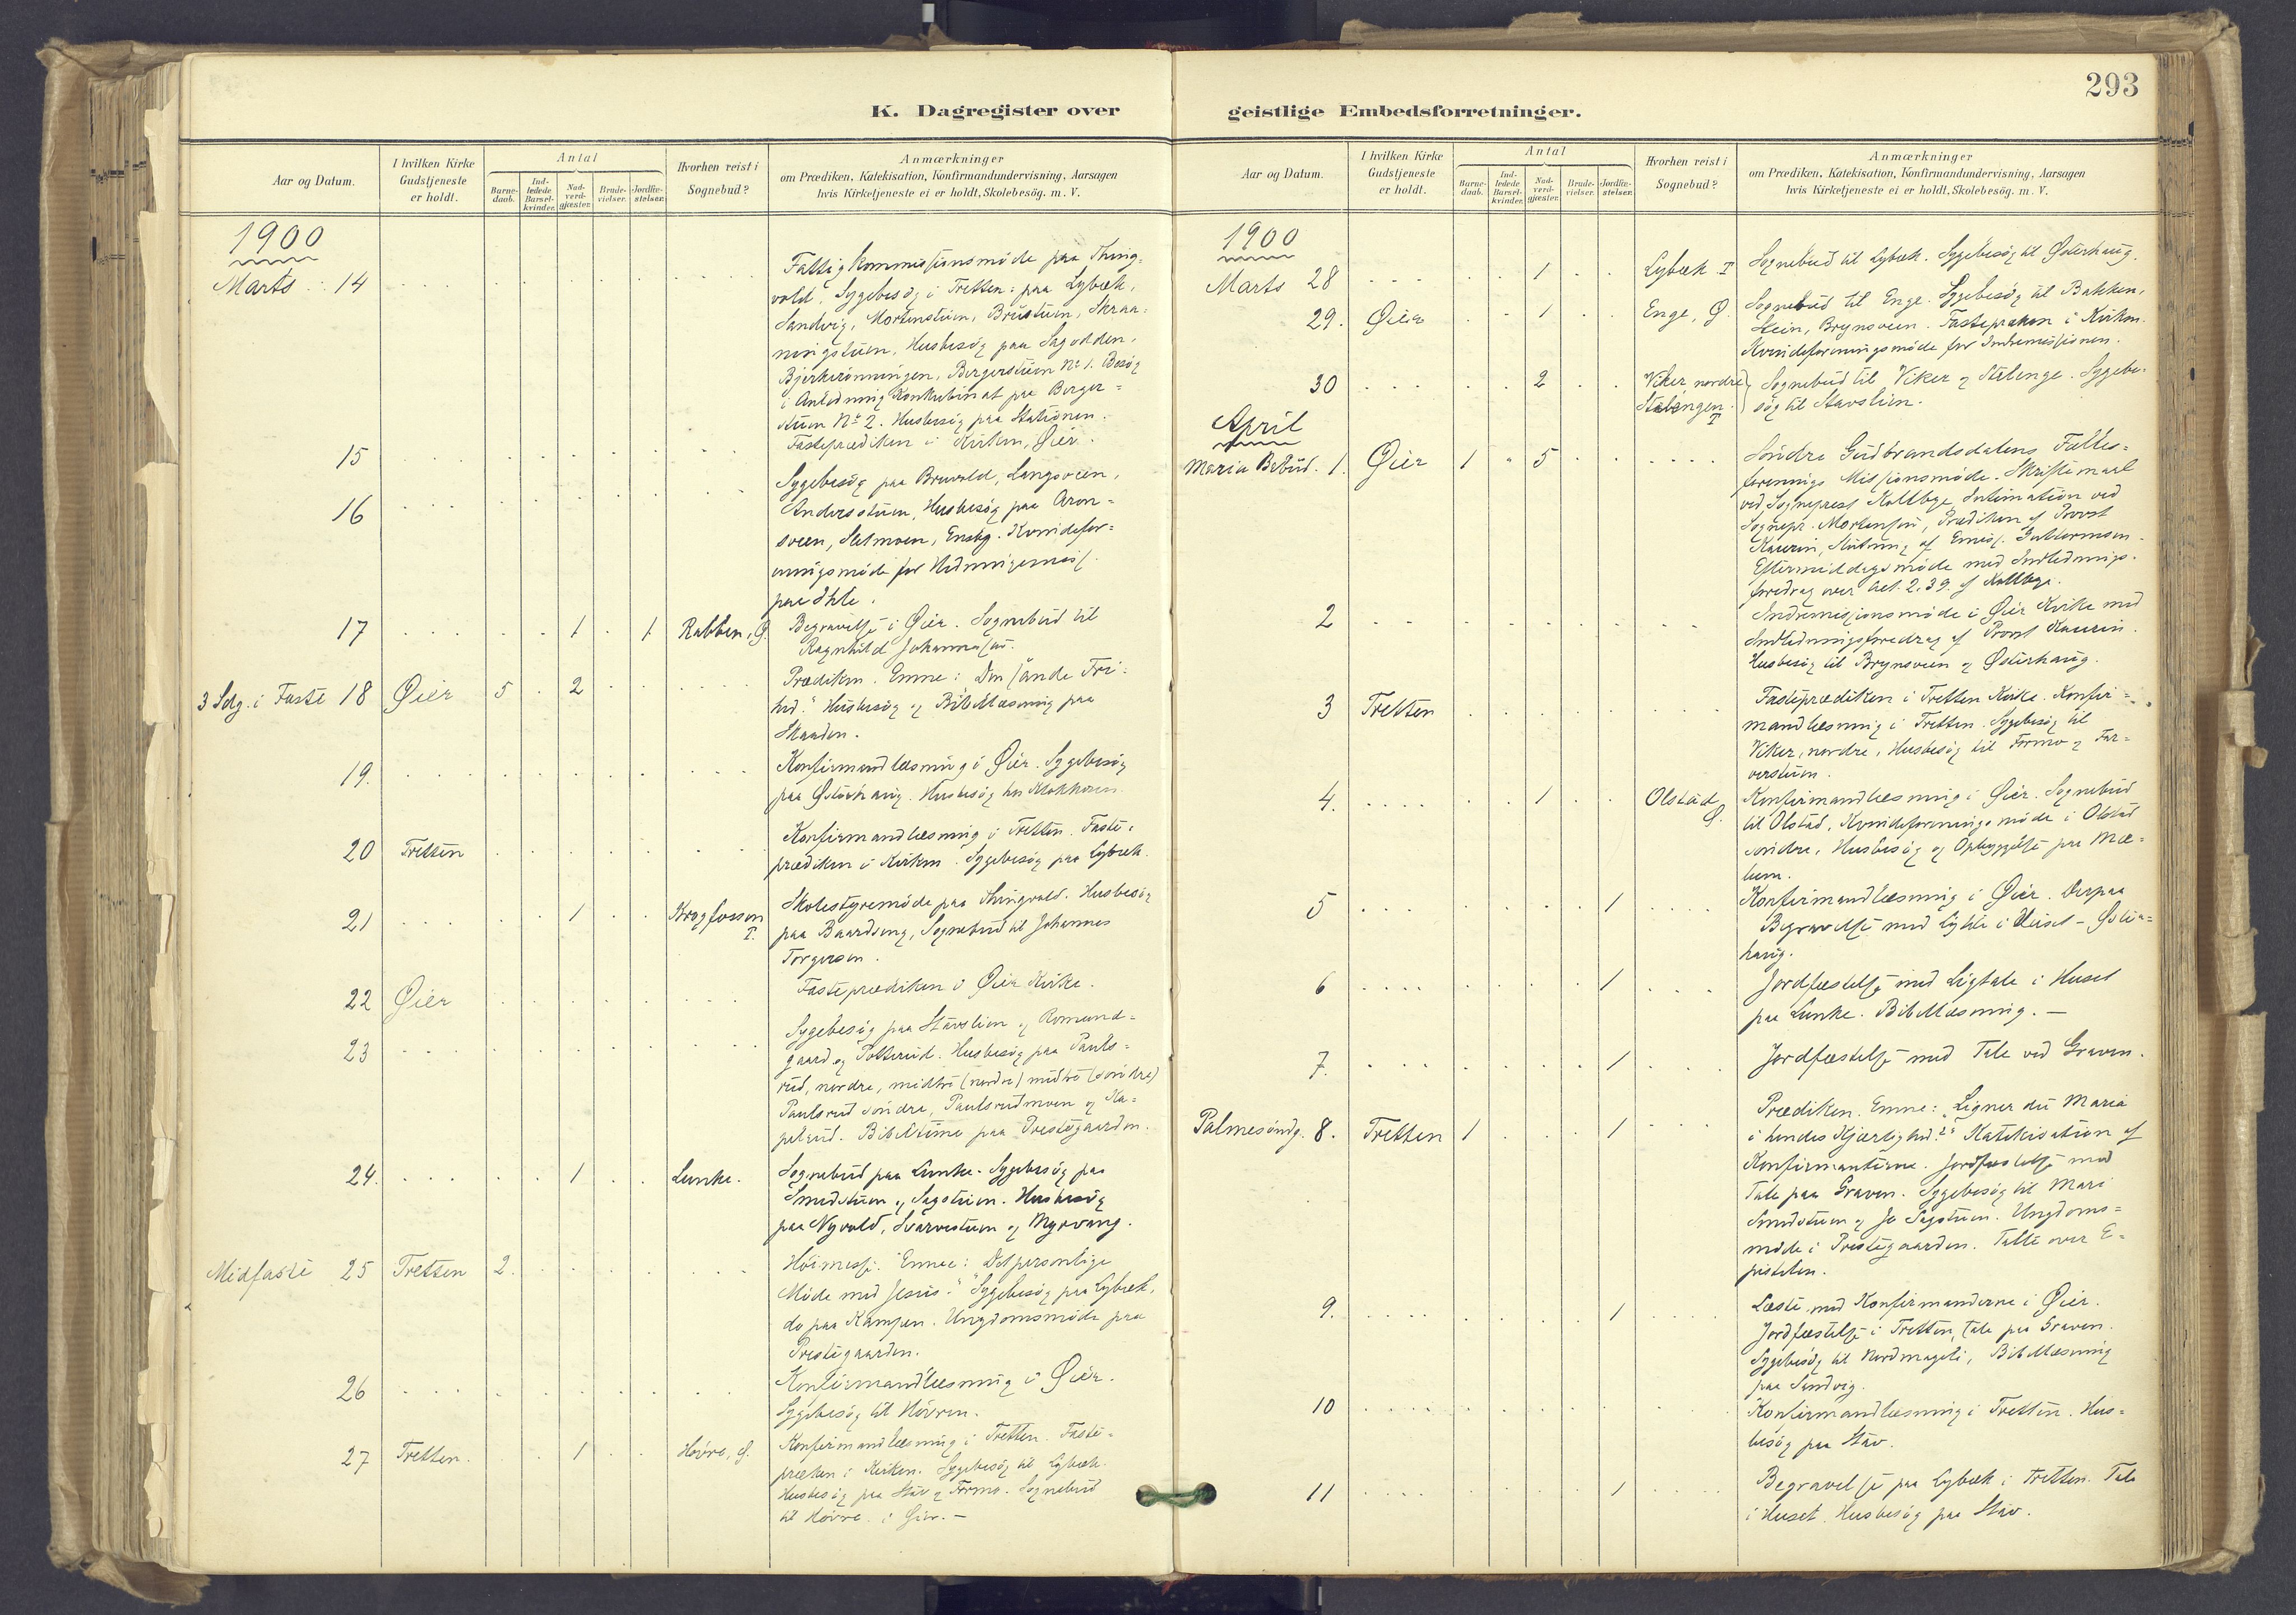 293
K. Dagregister over geistlige Embedsforretninger.
Aar og Datum.
I hvilken Kirke
Gudstjeneste
er holdt.
Antal
Barne-
daab.
Ind-
ledede
Barsel-
kvinder.
Nad-
verd-
gjæster.
Brude-
vielser.
Jordfæ-
stelser.
Hvorhen reist i
Sognebud?
Anmærkninger
om Prædiken, Katekisation, Konfirmandundervisning, Aarsagen
hvis Kirketjeneste ei er holdt, Skolebesög. m. V.
1900
Marts 14
Fattigkommissionsmöde paa Thing-
vold. Sygebesög i Tretten: paa Lybæk,
Sandvig, Mortenstuen, Brustuen, Skraa-
ningstuen, Husbesög paa Sagodden,
Bjerkerönningen, Bergerstuen No 1. Besög
i Anledning Konkubinat paa Berger-
stuen No 2. Husbesög paa Stationen.
15
Fasteprædiken i Kirken, Öier.
16
Sygebesög paa Bruvold, Langsveen,
Andersstuen, Husbesög paa Aron-
sveen, Sletmoen, Enebg. Kvindefor-
eningsmöde for Hedningemiss.
paa Ihle.
17 1 1 Rabben, Ö.
Begravelse i Öier. Sognebud til
Ragnhild Johannessen.
3 Sdg. i Faste 18 Öier 5 2
Prædiken. Emne: Den sande Fri-
hed." Husbesög og Bibellæsning paa
Skaaden.
19.
Konfirmandlæsning i Öier. Sygebesög
paa Österhaug. Husbesög hos Klokkeren.
20 Tretten
Konfirmandlæsning i Tretten. Faste-
prædiken i Kirken. Sygebesög paa Lybæk.
21 1 Krogfossen T.
Skolestyremöde paa Thingvold. Husbesög
paa Baardseng, Sognebud til Johannes
Torgersen.
22 Öier
Fasteprædiken i Öier Kirke.
23
Sygebesög paa Stavslien og Romund-
gaard og Potterud. Husbesög paa Pauls-
rud, nordre, midtre (nordre) midtre (söndre)
Paulsrud söndre, Paulsrudmoen og Ka-
pelrud. Bibeltime paa Prestegaarden.
24. 1 Lunke.
Sognebud paa Lunke. Sygebesög paa
Smedstuen og Sagstuen. Husbesög
paa Nyvold, Svarvestuen og Myrvang.
Midfaste 25 Tretten 2.
Höimesse. Emne: Det personlige
Möde med Jesus." Sygebesög paa Lybæk,
do paa Kampen. Ungdomsmöde paa
Prestegaarden.
26
Konfirmandlæsning i Öier.
Sygebesög til Hövren.
27 Tretten. 1 Hövre, Ö.
Konfirmandlæsning i Tretten. Faste-
præken i Kirken. Sygebesög til Lybæk.
Husbesög paa Stav og Formo. Sognebud
til Hövre i Öier. –
Aar og Datum.
I hvilken Kirke
Gudstjeneste
er holdt.
Antal
Barne-
daab.
Ind-
ledede
Barsel-
kvinder.
Nad-
verd-
gjæster.
Brude-
vielser.
Jordfæ-
stelser.
Hvorhen reist i
Sognebud?
Anmærkninger
om Prædiken, Katekisation, Konfirmandundervisning, Aarsagen
hvis Kirketjeneste ei er holdt, Skolebesög. m. V.
1900
Marts 28 1 Lybæk T
Sognebud til Lybæk. Sygebesög til Österhaug.
29. Öier 1 Enge, Ö.
Sognebud til Enge. Sygebesög til Bakken,
Stein, Brynsveen. Fastepræken i Kirken.
Kvindeforeningsmöde for Indremissionen.
30 2 Viker nordre
Stalengen. T
Sognebud til Viker og Stalenge. Sygebe-
sög til Stavslien.
April
Maria Bebud. 1. Öier 1 5
Söndre Gudbrandsdalens Fælles-
forenings Missionsmöde. Skriftemaal
ved Sogneprest Koltbye, Intimation ved
Sognepr. Mortensen, Prædiken af Provst
Kaurin, Slutning af Emiss. Guttormsen.
Eftermiddagsmöde med Indlednings-
foredrag over Act. 2. 39 af Koltbye.
2
Indremissionsmöde i Öier Kirke med
Indledningsforedrag af Provst Kaurin.
Husbesög til Brynsveen og Österhaug.
3 Tretten
Fasteprædiken i Tretten Kirke. Konfir-
mandlæsning i Tretten. Sygebesög til
Viker, nordre, Husbesög til Formo og Far-
verstuen.
4. 1 Olstad, Ö.
Konfirmandlæsning i Öier. Sognebud
til Olstad. Kvindeforenings möde i Olstad
söndre, Husbesög og Opbyggelse paa Mæ-
lum.
5 1
Konfirmandlæsning i Öier. Derpaa
Begravelse med Ligtale i Huset – Öster-
haug.
6 1
Jordfæstelse med Ligtale i Huset
paa Lunke. Bibellæsning. –
7. 1
Jordfæstelse med Tale ved Graven.
Palmesöndg. 8. Tretten 1 1
Prædiken. Emne: „Ligner du Maria
i hendes Kjærlighed?" Katekisation af
Konfirmanterne. Jordfæstelse med
Tale paa Graven. Sygebesög til Mari
Smedstuen og Jo Sagstuen. Ungdoms-
möde i Prestegaarden. Talte over E-
pistelen.
9. 1
Læste med Konfirmanderne i Öier.
Jordfæstelse i Tretten, Tale paa Graven.
Sygebesög til Nordmageli, Bibellæsning
paa Sandvig.
10
Konfirmandlæsning i Tretten. Hus-
besög paa Stav.
11 1
Begravelse paa Lybæk i Tretten. Tale
i Huset. Husbesög paa Stav.